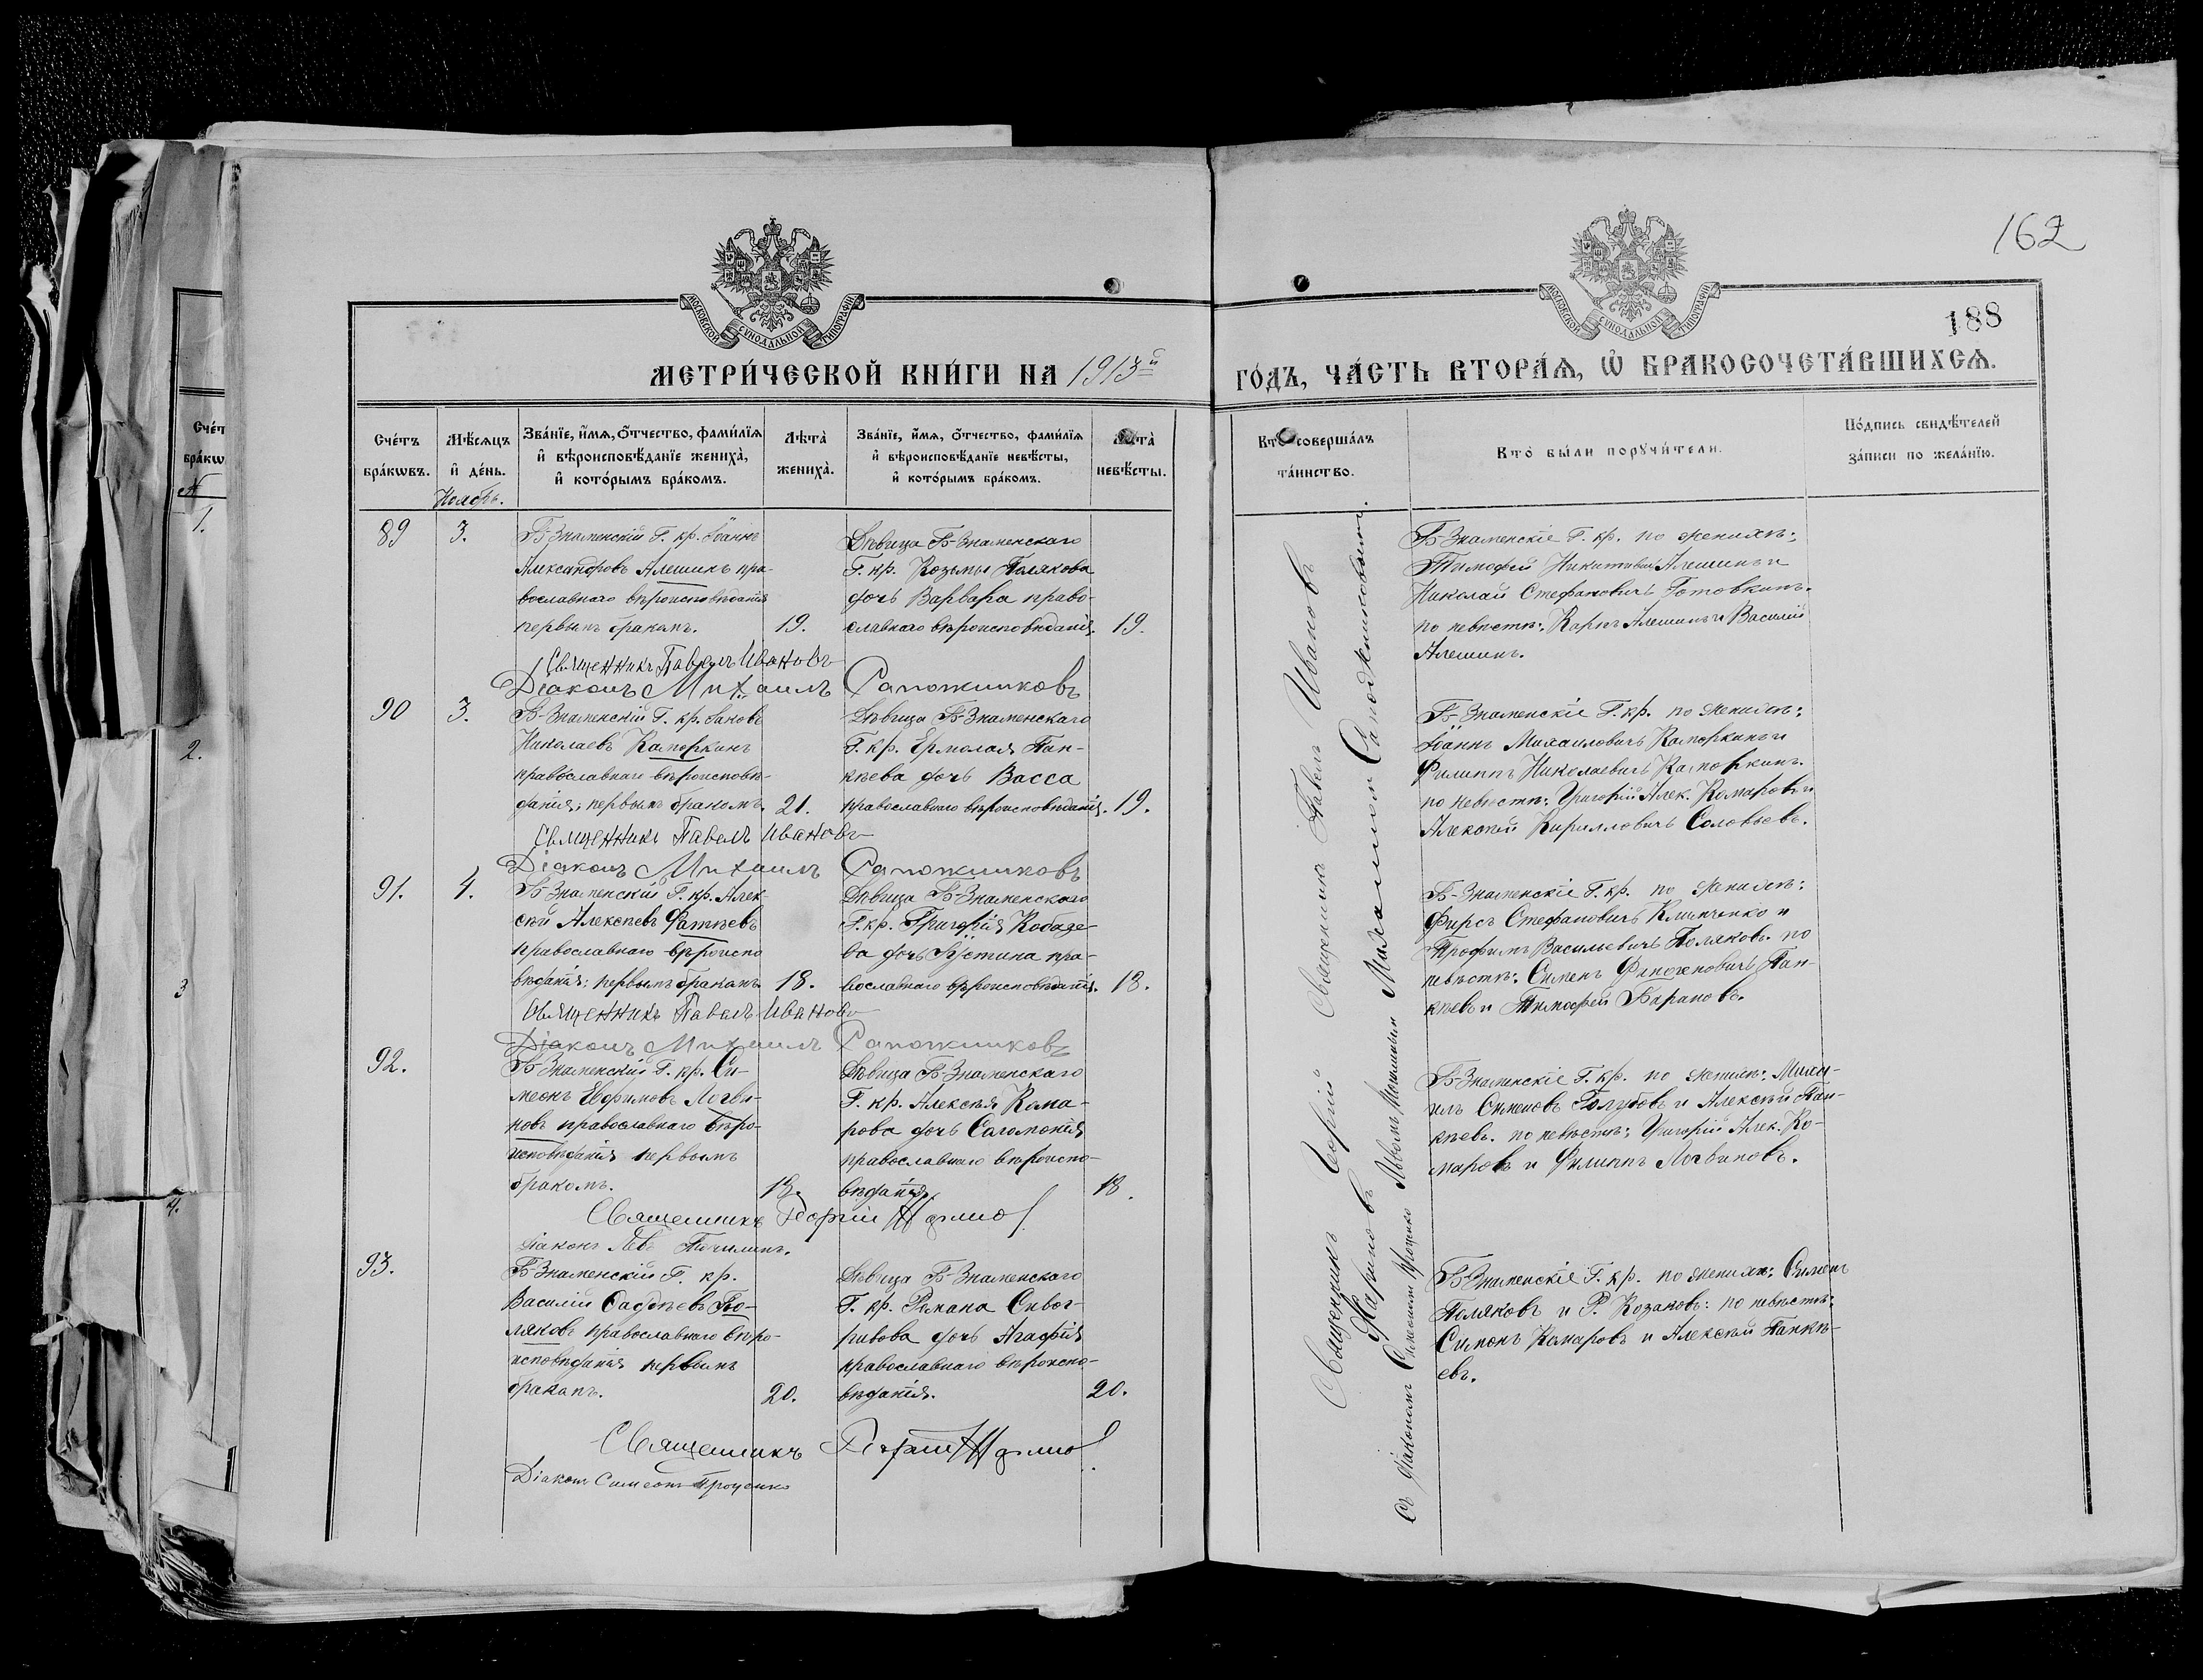 162
188
МОСКОВСКОЙ СУНОДАЛЬНОЙ ТИПОГРАФІИ
МОСКОВСКОЙ СУНОДАЛЬНОЙ ТИПОГРАФІИ
МЕТРИ́ЧЕСКОЙ КНИ́ГИ НА 1913й
ГО́ДЪ, ЧА́СТЬ ВТОРА́Ѧ, Ѽ БРАКОСОЧЕТА́ВШИХСѦ.
Сче́тъ бра́кѡвъ.
Мѣ́сѧцъ и҆ де́нь.
Зва́нїе, и҆́мѧ, о҆́тчество, фами́лїѧ и҆ вѣроисповѣ́данїе жениха̀, и҆ кото́рымъ бра́комъ.
Лѣта̀ жениха̀.
Зва́нїе, и҆́мѧ, о҆́тчество, фами́лїѧ и҆ вѣроисповѣ́данїе невѣ́сты, и҆ кото́рымъ бра́комъ.
Лѣта̀ невѣ́сты.
Кто̀ соверша́лъ та́инство.
Кто̀ бы́ли порꙋчи́тели.
По́дпись свидѣ́телей за́писи по жела́нїю.
Ноябрь.
89
3.
Б-Знаменскій Г. кр. Іоаннъ
Александровъ Алешинъ пра-
вославнаго вѣроисповѣданія
первымъ бракомъ.
19.
Дѣвица Б-Знаменскаго
Г. кр. Козьмы Полякова
дочь Варвара право-
славнаго вѣроисповѣданія.
19.
Б-Знаменскіе Г. кр. по женихѣ:
Тимофей Никитовичъ Алешинъ и
Николай Стефановичъ Готовкинъ.
по невѣстѣ: Карпъ Алешинъ и Василій
Алешинъ.
Священникъ Павелъ Ивановъ
Діаконъ Михаилъ Сапожниковъ
90
3.
Б-Знаменскій Г. кр. Іаковъ
Николаевъ Каторкинъ
православнаго вѣроисповѣ-
данія; первымъ бракомъ.
21.
Дѣвица Б-Знаменскаго
Г. кр. Ермолая Пан-
кѣева дочь Васса
православнаго вѣроисповѣданія.
19.
Б-Знаменскіе Г. кр. по женихѣ:
Іоаннъ Михаиловичъ Каторкинъ и
Филиппъ Николаевичъ Каторкинъ.
по невѣстѣ: Григорій Алек. Комаровъ и
Алексѣй Кирилловичъ Соловьевъ.
Священникъ Павелъ Ивановъ
Діаконъ Михаилъ Сапожниковъ
91.
4.
Б-Знаменскій Г. кр. Алек-
сѣй Алексѣевъ Фатѣевъ
православнаго вѣроиспо
вѣданія; первымъ бракомъ.
18.
Дѣвица Б-Знаменскаго
Г. кр. Григорія
ва дочь Іустина пра-
вославнаго вѣроисповѣданія.
18.
Б-Знаменскіе Г. кр. по женихѣ:
Фирсъ Стефановичъ Климченко и
Трофимъ Васильевичъ Поляковъ. по
невѣстѣ: Симеонъ Финогеновичъ Пан-
кѣевъ и Тимофей Барановъ.
Священникъ Павелъ Ивановъ
Діаконъ Михаилъ Сапожниковъ
92.
Б-Знаменскій Г. кр. Си-
меонъ Евфимовъ Логви-
новъ православнаго вѣро-
исповѣданія первымъ
бракомъ.
18.
Дѣвица Б-Знаменскаго
Г. кр. Алексѣя Кома-
рова дочь Саломонія
православнаго вѣроиспо-
вѣданія.
18.
Б-Знаменскіе Г. кр. по женихѣ: Миха-
илъ Симеоновъ Голубовъ и Алексѣй Пан-
кѣевъ. по невѣстѣ: Григорій Алек. Ко-
маровъ и Филиппъ Логвиновъ.
Священникъ Георгій
Діаконъ Левъ
93.
Б-Знаменскій Г. кр.
Василій Фаддѣевъ По-
ляковъ православнаго вѣро-
исповѣданія первымъ
бракомъ.
20.
Дѣвица Б-Знаменскаго
Г. кр. Романа Сквор-
дочь Агафія
православнаго вѣроиспо-
вѣданія.
20.
Б-Знаменскіе Г. кр. по женихѣ: Симеонъ
Поляковъ и Р. Козаковъ: по невѣстѣ:
Симеонъ Комаровъ и Алексѣй Панкѣ-
евъ.
Священникъ Георгій
Діаконъ Симеонъ Проценко
Священникъ Георгій Священникъ Павелъ Ивановъ
съ діакономъ Симеономъ Проценко Львомъ Михаиломъ Сапожниковымъ.
Сче́т
бра́кѡ
1.
2.
3
4.